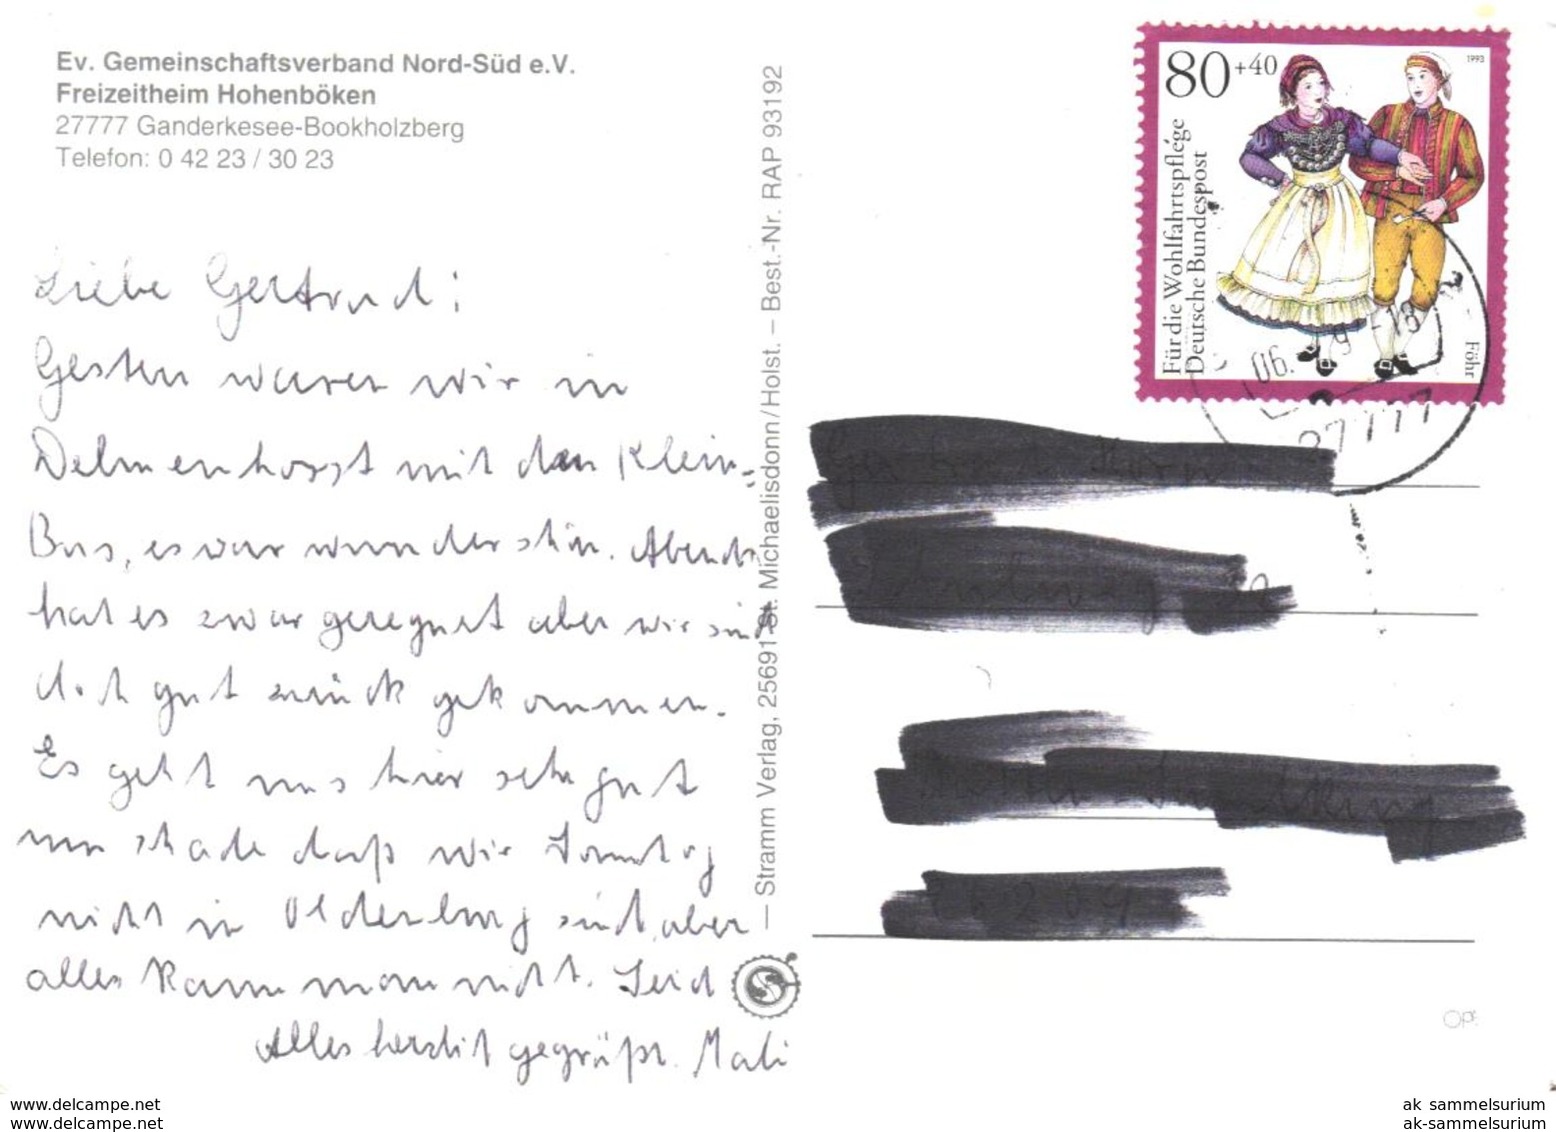 Ev. Gemeinschaftsverband Nord-Süd e.V.
Freizeitheim Hohenböken
27777 Ganderkesee-Bookholzberg
Telefon: 0 42 23 / 30 23
Liebe Gertrud!
Gestern waren wir in
Delmenhorst mit den Klein-
Bus, es war wunderschön. Abends
hat es zwar geregnet aber wir sind
doch gut zurück gekommen.
Es geht uns hier sehr gut
nur schade daß wir Sonntag
nicht in Oldenburg sind, aber
alles kann man nicht. Seid
Alles herzlich gegrüßt.
— Stramm Verlag, 25691 St. Michaelisdonn/Holst. – Best.-Nr. RAP 93192
80+40
1993
Für die Wohlfahrtspflege
Deutsche Bundespost
Föhr
06.
-18
27777
www.delcampe.net
www.delcampe.net
ak_sammelsurium
ak-sammelsurium